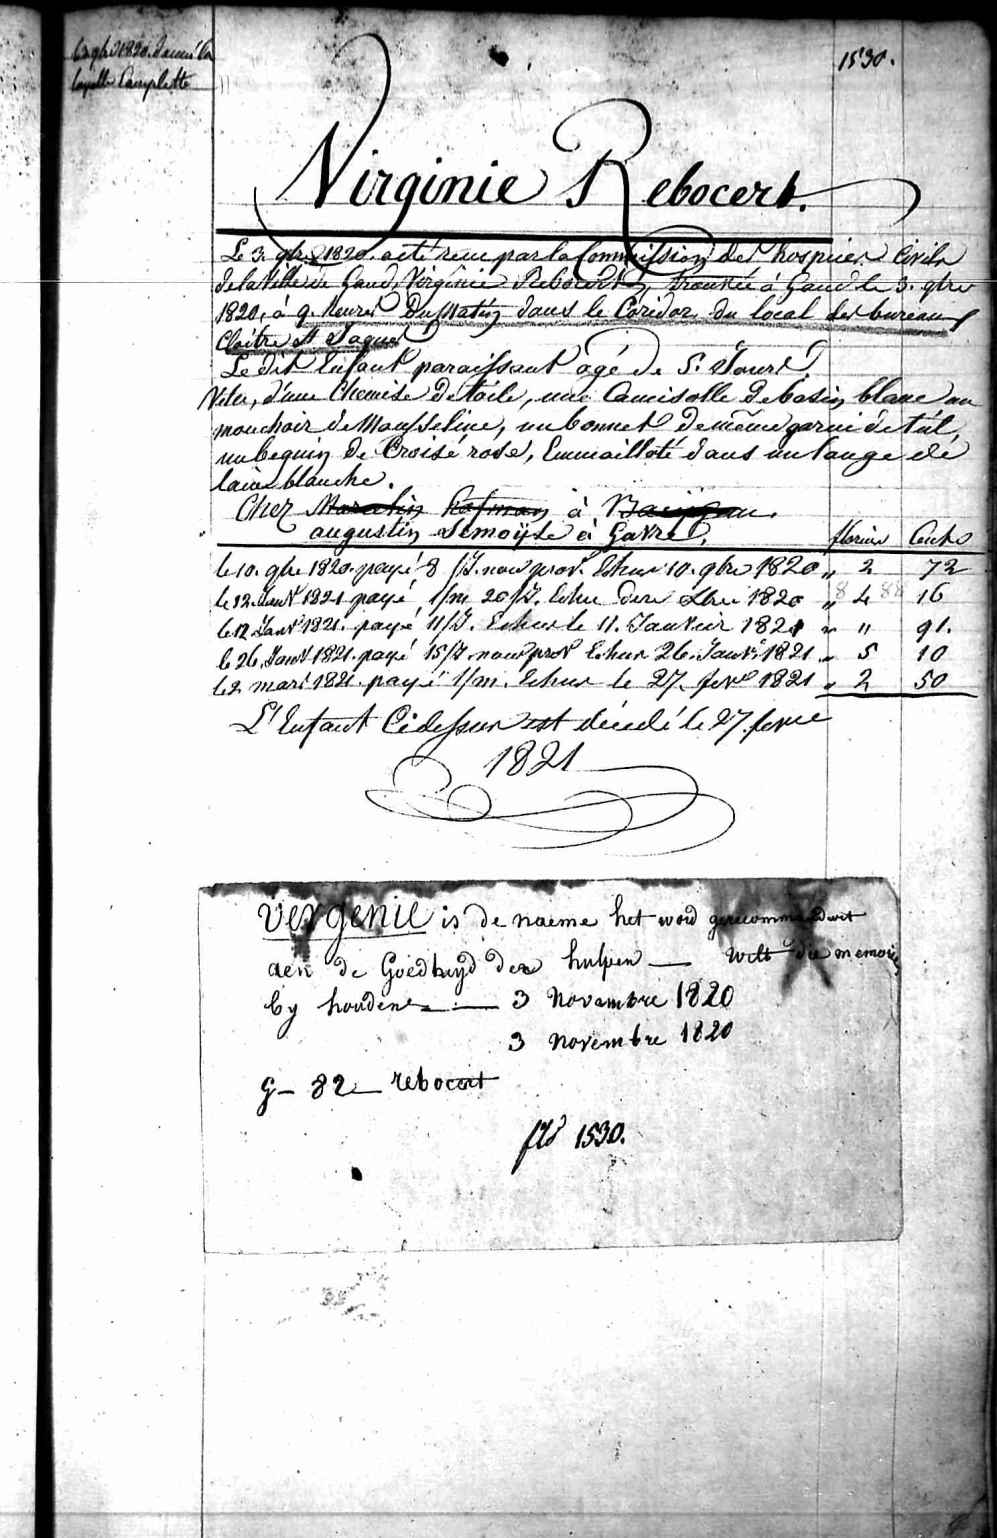 le 3 9bre 1820. donné la
layette Complette
1530.
Virginie Rebocert.
Le 3. 9bre 1820. a été recu par la Commission des hospices Civils
de la Ville de Gand, Virginie Rebocert, trouvée à Gand le 3. 9bre
1820, à 9. heures Du Matin dans le Coridor du local des bureaux
Cloitre St Jaques
Le dit Enfant paraissant agé de 5. Jours.
Vetu, d'une Chemise De toile, une Camisolle De basin blanc un
mouchoir de Mousseline, un bonnet De même garni de tul,
un beguin De Croisé rose, Emmailloté dans un lange de
laine blanche.
Chez Hofman à
augustin Semoijse à Gavre.
florins Cents
le 10. 9bre 1820. payé 8 /J. nour prov. Echus 10. 9bre 1820 " 2 72
le 12. Janv 1821 payé 1/m 20/J. Echu Xbre 1820 " 4 16
le 12 Janv 1821. payé 11/J. Echus le 11. Janvier 1821 " " 91.
le 26. Janv 1821. payé 15/J. nour prov Echus 26. Janv 1821 " 5 10
le 2 mars 1821. payé 1/m. Echus le 27. fevr 1821 " 2 50
L'Enfant Cidessus est décedé le 27. fevrie
1821
vergenie is de naeme het word gerecommandeert
aen de Goedhyd der hulpen — Wilt die memorie
by houden — 3 Novembre 1820
3 Novembre 1820
G — 82 — rebocert
flo 1530.